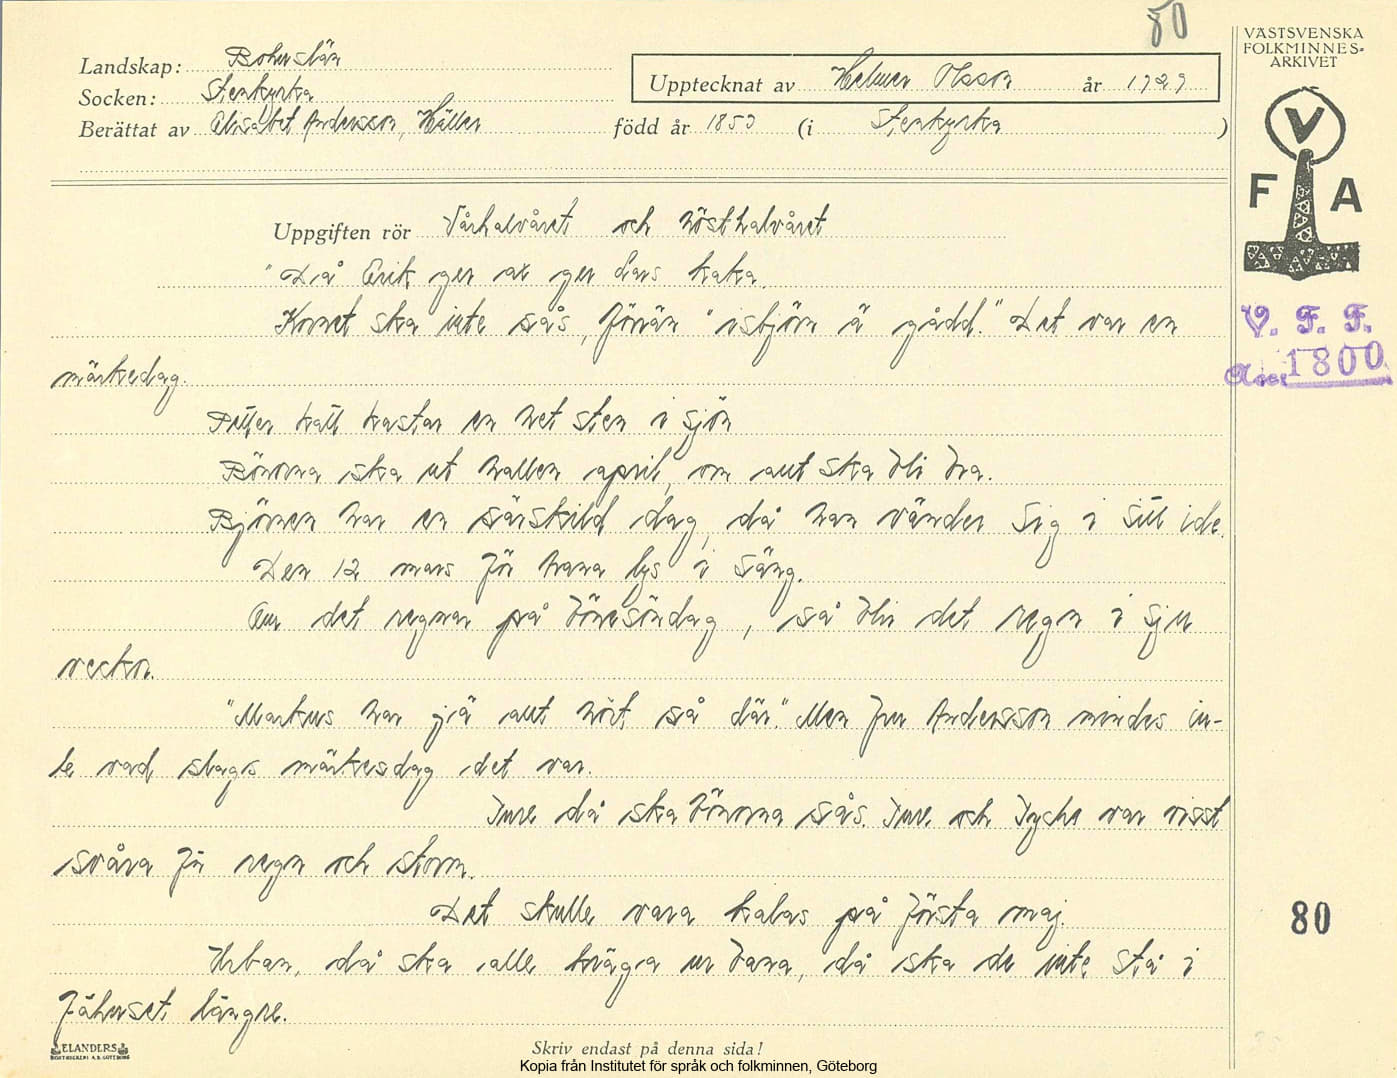 80
VÄSTSVENSKA
FOLKMINNES-
ARKIVET
Landskap: Bohuslän
Socken: Stenkyrka
Upptecknat av Helmer Olsson år 1929
Berättat av Elisabet Andersson, Häller född år 1853 (i Stenkyrka )
V
F A
Uppgiften rör Vårhalvåret och hösthalvåret
"Då Erik ger ax ger Lars kaka.
Kornet ska inte sås, förrän "isbjörn ä gådd." Det var en
märkedag.
V. F. F.
Acc. 1800
Petter katt kastar en het sten i sjön
Bönorna ska ut hallen april, om aut ska bli bra.
Björnen har en särskild dag, då han vänder sig i sitt ide.
Den 12 mars för hava lys i säng.
Om det regnar på bönesöndag, så blir det regn i sju
veckor.
"Markus har jä aut hört så där." Men fru Andersson mindes in-
te vad slags märkesdag det var.
Ture då ska bönorna sås. Ture och Tyche var visst
svåra för regn och storm.
Det skulle vara kalas på första maj.
80
Urban, då ska alle kräga ur vara, då ska de inte stå i
fähuset längre.
ELANDERS
BOKTRYCKERI A.B. GÖTEBORG
Skriv endast på denna sida!
Kopia från Institutet för språk och folkminnen, Göteborg